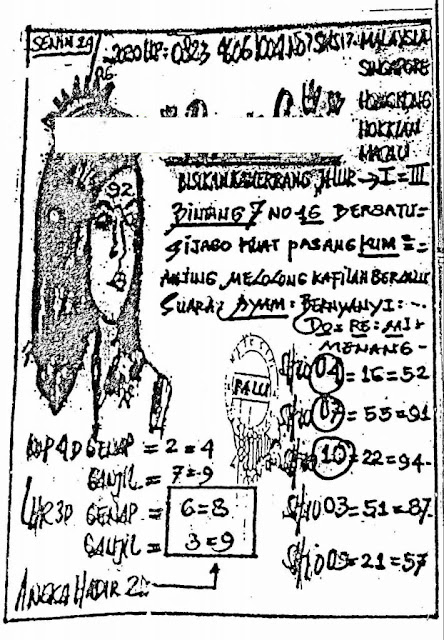 SENIN
2020 HP: 0823
MALAYSIA
SINGAPORE
HONGKONG
HOKKIAN
MACAU
92
JALUR → I = III
BINTANG 7 NO 16 BERSATU =
SIJAGO KUAT PASANG KUM
ANJING MELOLONG KAFILAH BERLALU
SUARA: AYAM: BERNYANYI:
DO = RE = MI
MENANG
PALU
SHIO 04 = 16 = 52
SHIO 07 = 55 = 91
SHIO 10 = 22 = 94
SHIO 03 = 51 = 87
SHIO 09 = 21 = 57
KOP 4D GENAP = 2 = 4
GANJIL = 7 = 9
3D GENAP = 6 = 8
GANJIL = 3 = 9
ANGKA HADIR